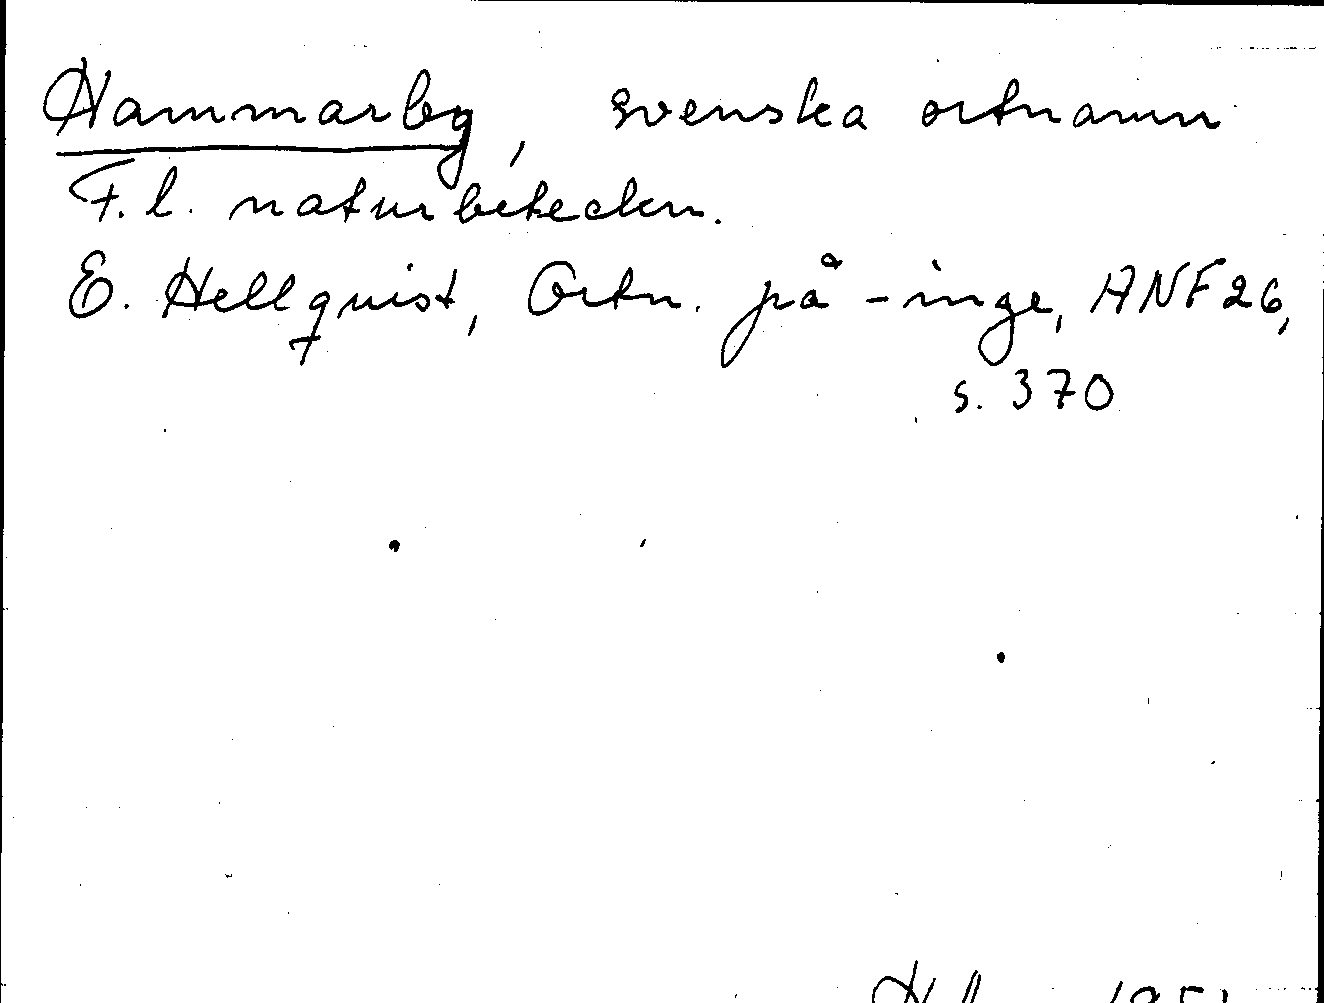 Hammarby, svenska ortnamn
F.l. naturbeteckn.
E. Hellquist, Ortn. på -inge, ANF 26,
s. 370